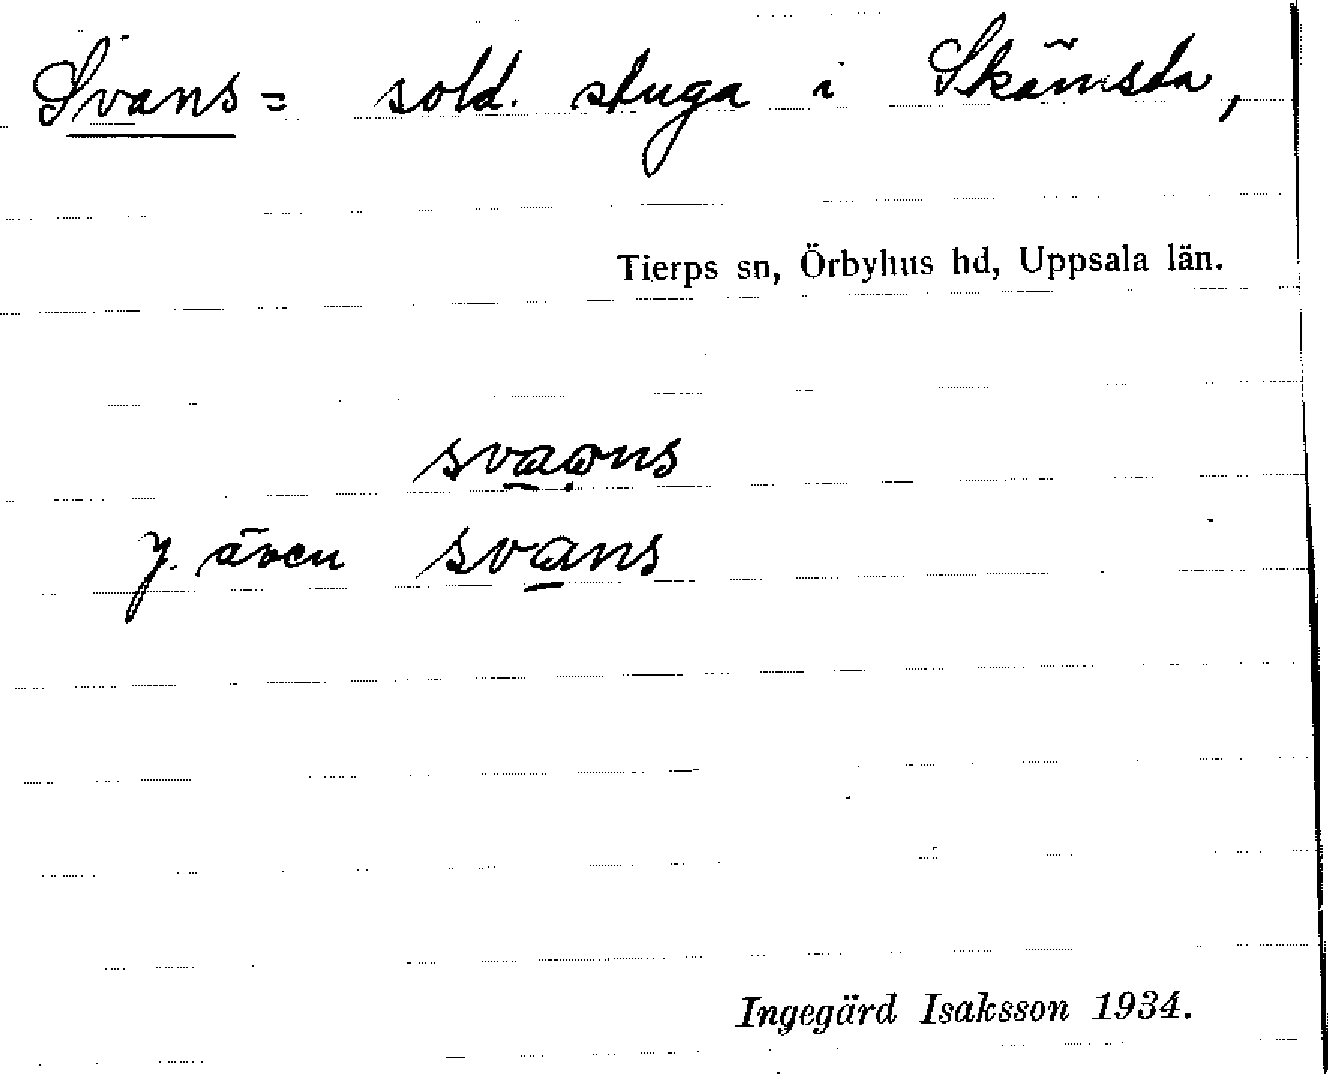 Svans = sold. stuga i Skämsta,
Tierps sn, Örbyhus hd, Uppsala län.
svaans
y. även svans
Ingegärd Isaksson 1934.